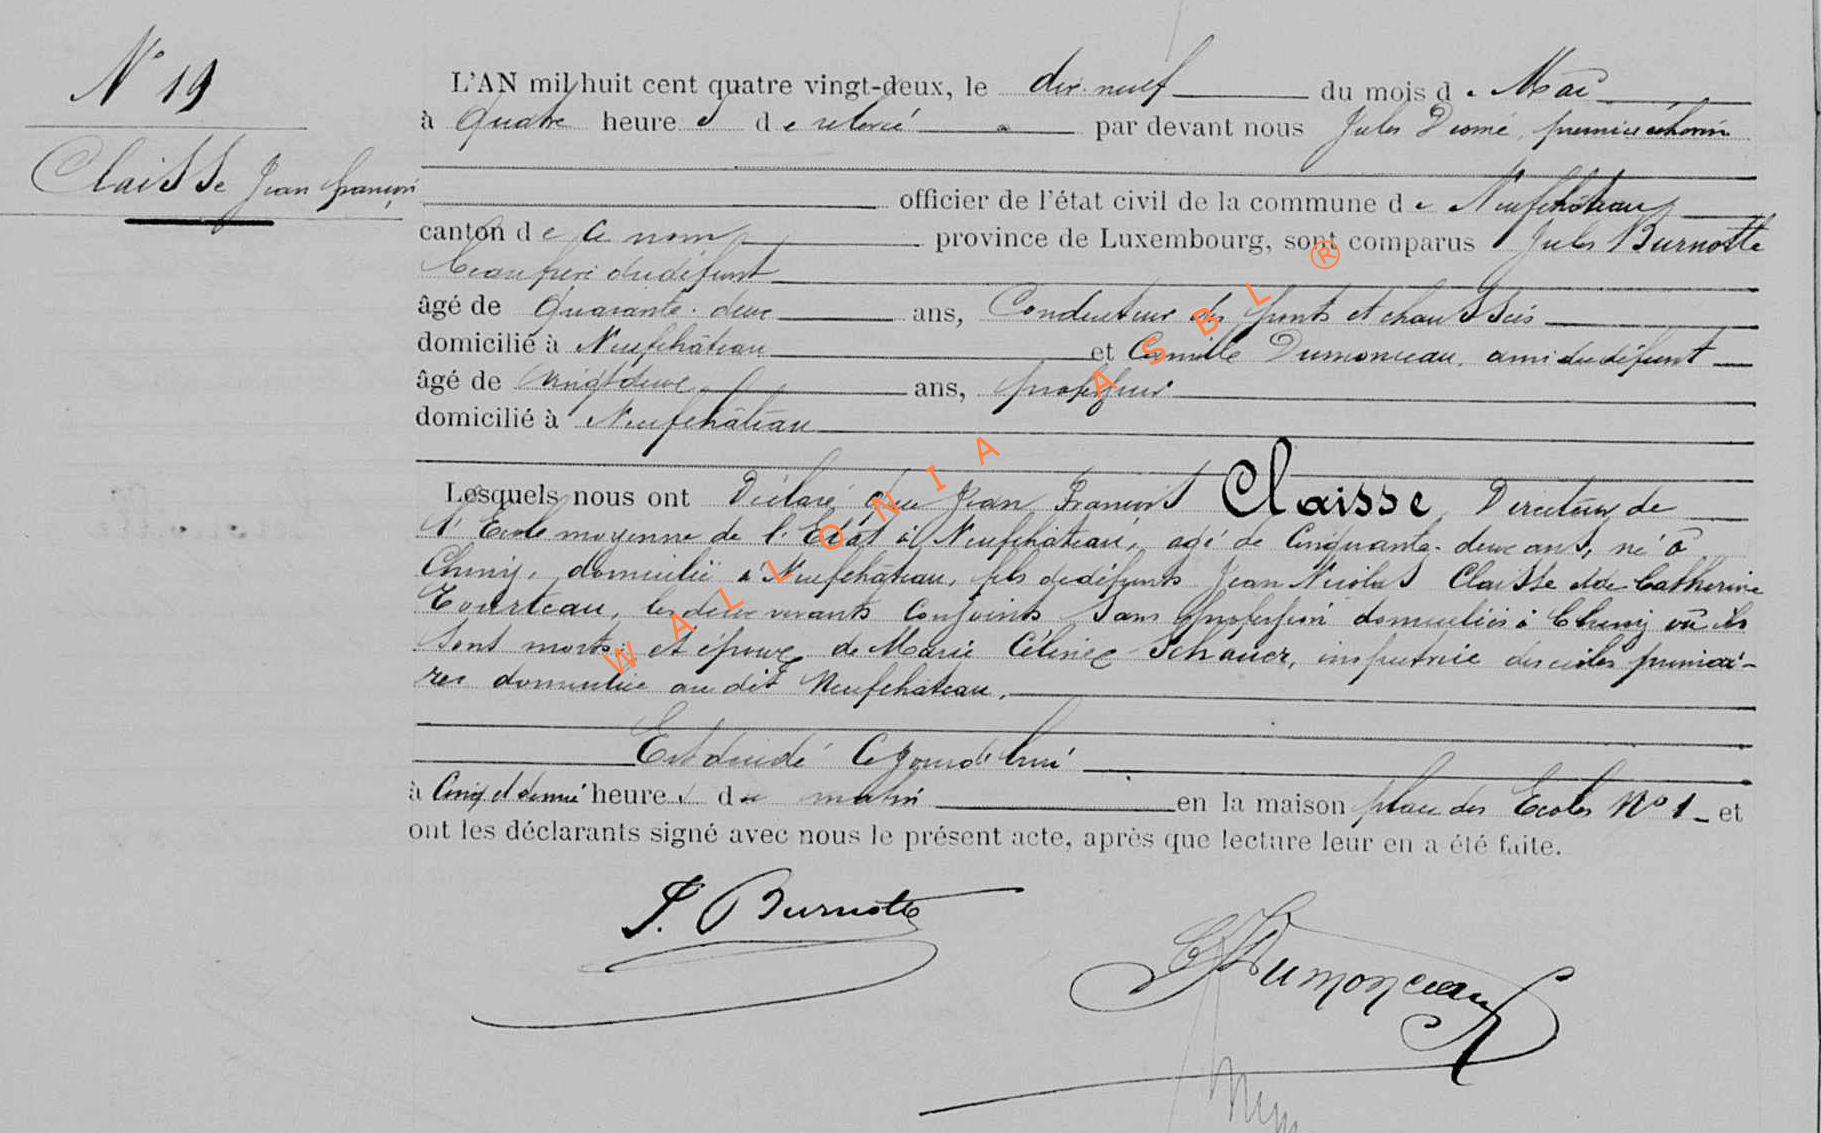 N° 19
Claisse Jean François
L'AN mil huit cent quatre vingt-deux, le dix-neuf du mois de Mai
à Quatre heures de relevée par devant nous Jules Diomé, premier échevin
officier de l'état civil de la commune de Neufchâteau
canton de ce nom province de Luxembourg, sont comparus Jules Burnotte
beau frère du défunt
âgé de Quarante-deux ans, Conducteur des ponts et chaussées
domicilié à Neufchâteau et Camille Dumonceau, ami du défunt
âgé de vingt deux ans, professeur
domicilié à Neufchâteau
Lesquels nous ont Déclaré que Jean François Claisse Directeur de
l'Ecole moyenne de l'Etat à Neufchâteau, agé de Cinquante-deux ans, né à
Chiny, domicilié à Neufchâteau, fils de défunts Jean Nicolas Claisse et de Catherine
Tourteau, les deux vivants conjoints sans profession domiciliés à Chiny où ils
sont morts; et époux de Marie Céline Schauer, inspectrice des écoles primai-
res domiciliée au dit Neufchâteau.
Est décédé Cejourd'hui
à Cinq et demie heures du matin en la maison place des Ecoles N° 1 et
ont les déclarants signé avec nous le présent acte, après que lecture leur en a été faite.
J. Burnotte
C Dumonceau
WALLONIA ASBL ®